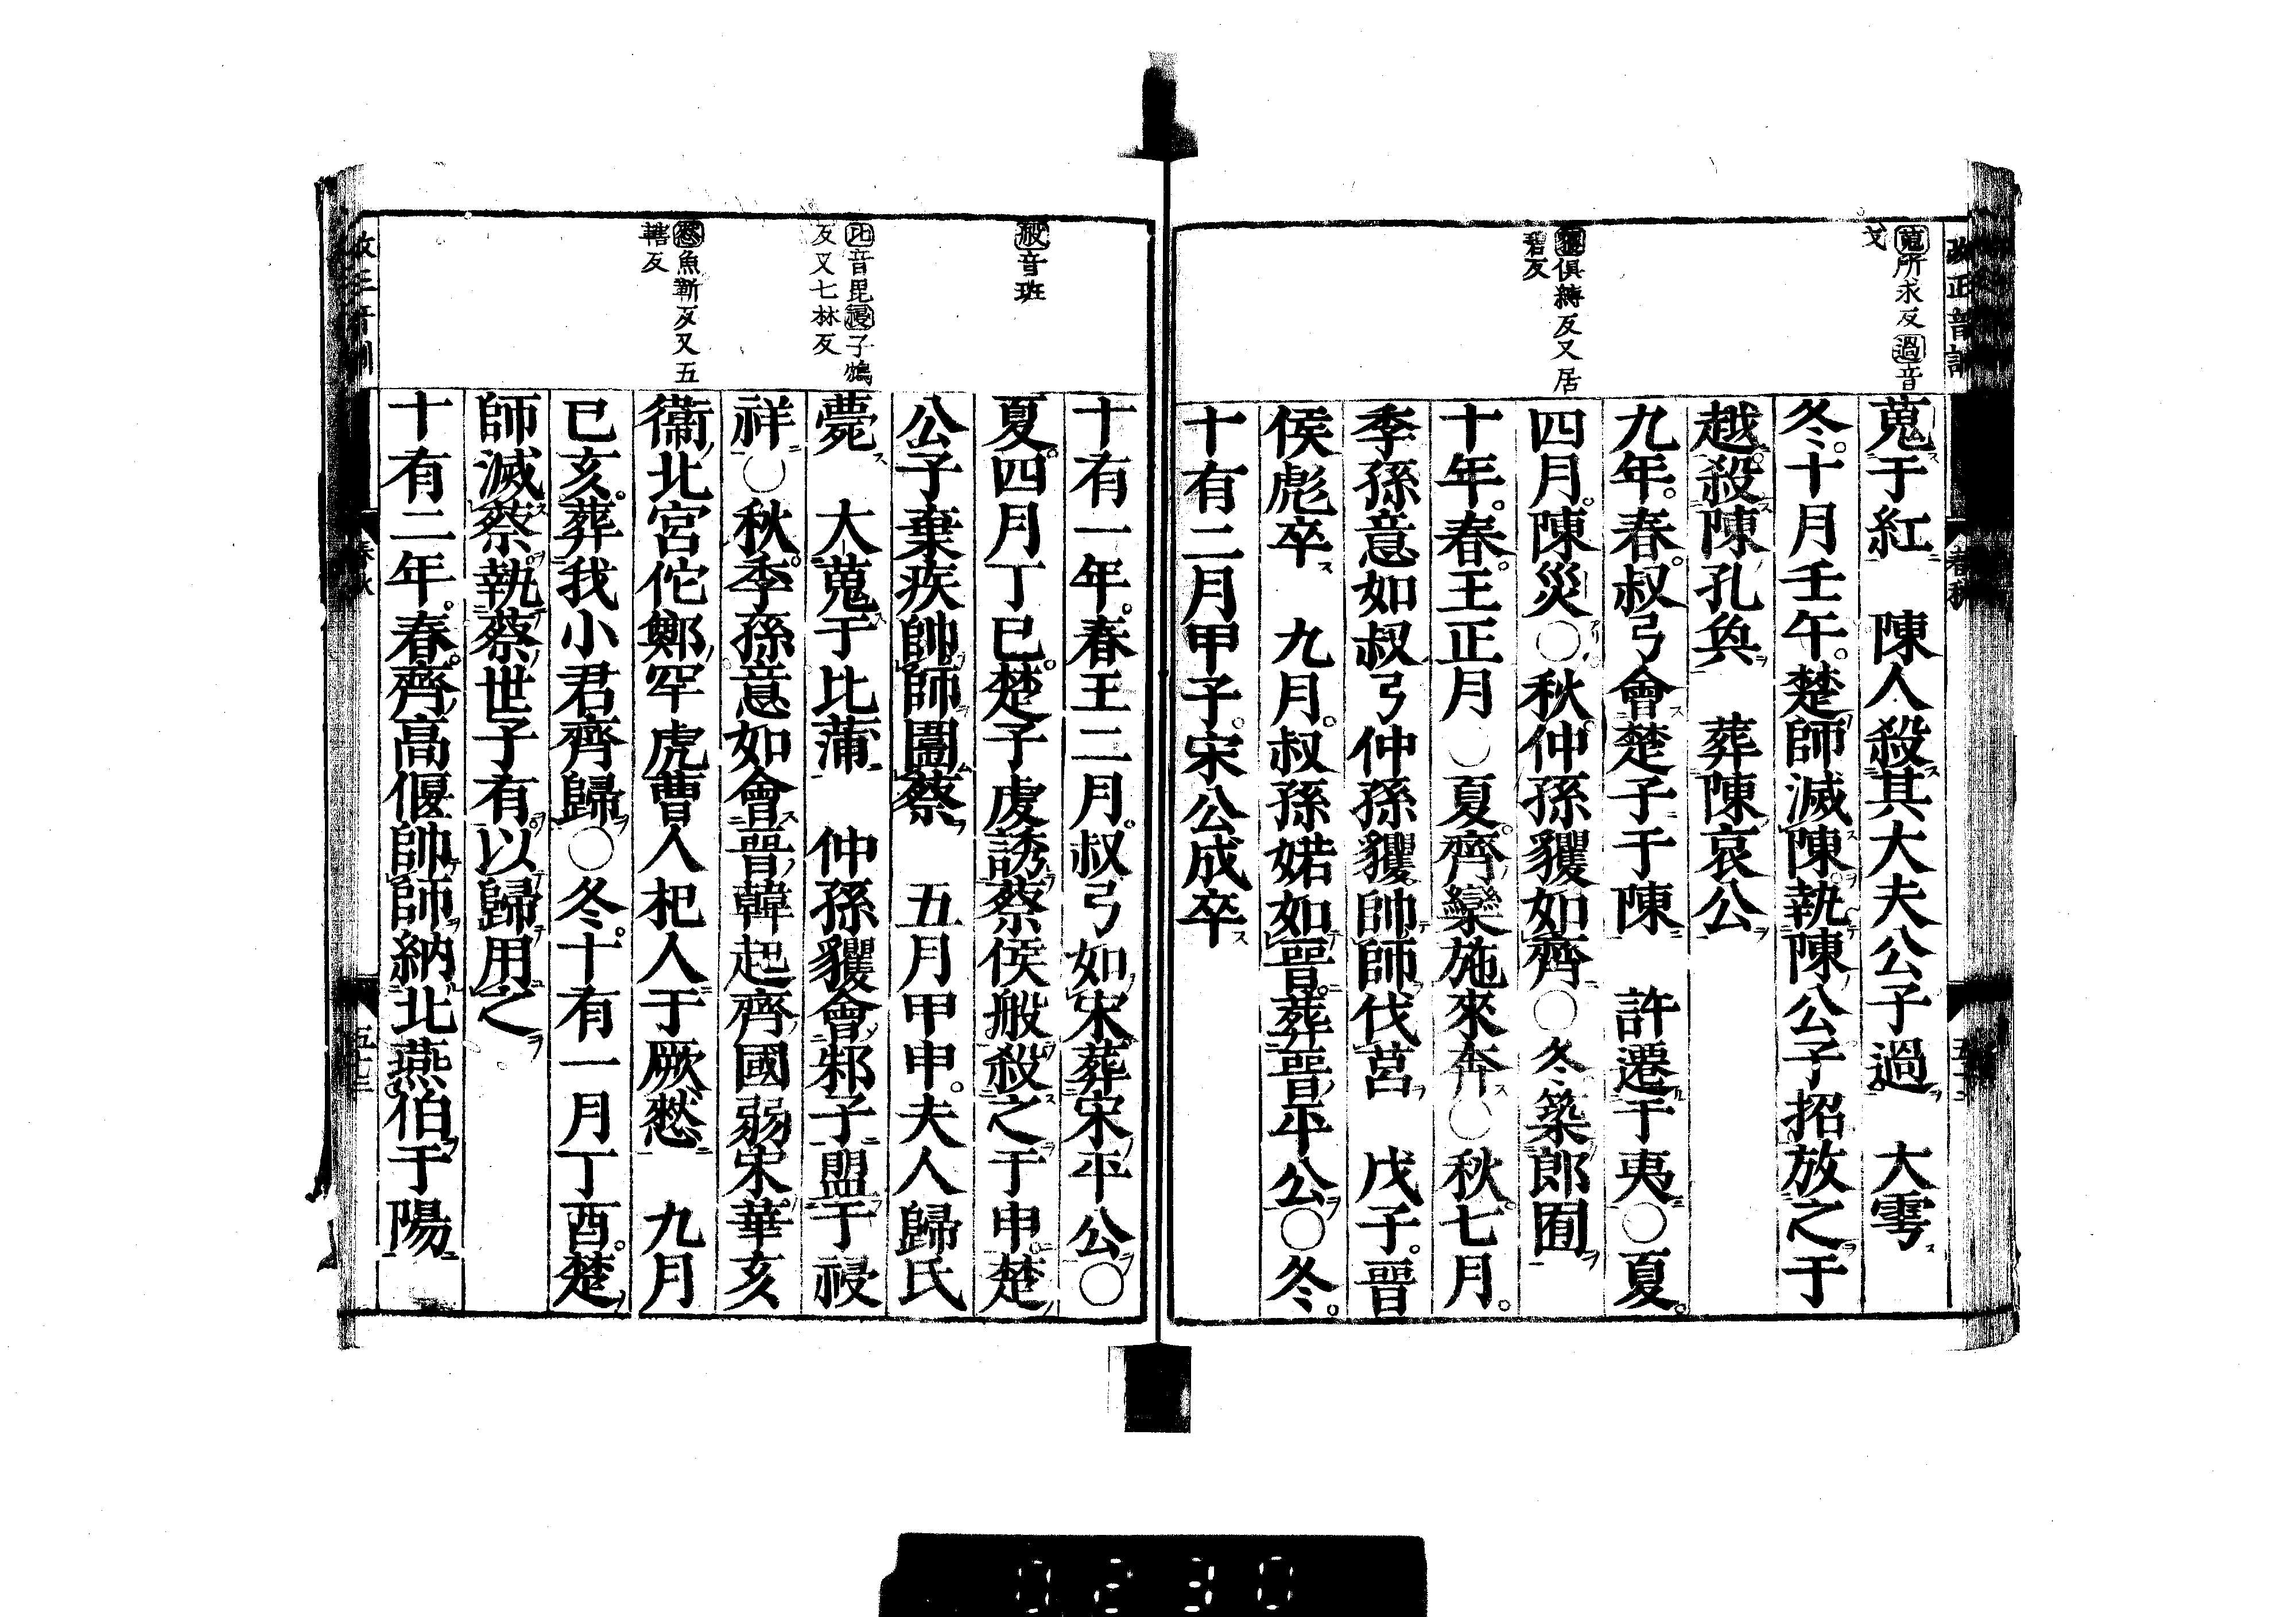 改正音訓
春秋
蒐所求反過音
戈
玃俱縛反又居
碧反
蒐于紅　陳人殺其大夫公子過　大雩
冬。十月壬午。楚師滅陳執陳公子招放之于
越。殺陳孔奐　葬陳哀公
九年。春。叔弓會楚子于陳　許遷于夷〇夏。
四月。陳災〇秋。仲孫貜如齊〇冬築郎囿
十年。春。王正月〇夏。齊欒施來奔〇秋。七月。
季孫意如叔弓仲孫貜帥師伐莒　戊子。晉
侯彪卒　九月。叔孫婼如晉。葬晉平公〇冬。
十有二月甲子。宋公成卒
般音班
比音毘祲子鴆
反又七林反
憖魚靳反又五
轄反
十有一年。春王二月。叔弓如宋葬宋平公〇
夏。四月丁巳。楚子虔誘蔡侯般殺之于申。楚
公子棄疾帥師圍蔡　五月甲申。夫人歸氏
薨　大蒐于比蒲　仲孫貜會邾子盟于祲
祥〇秋。季孫意如會晉韓起齊國弱宋華亥
衞北宮佗鄭罕虎曹人杞人于厥憖　九月
己亥。葬我小君齊歸〇冬。十有一月丁酉。楚
師滅蔡。執蔡世子有。以歸用之
十有二年。春。齊高偃帥師納北燕伯于陽
春秋